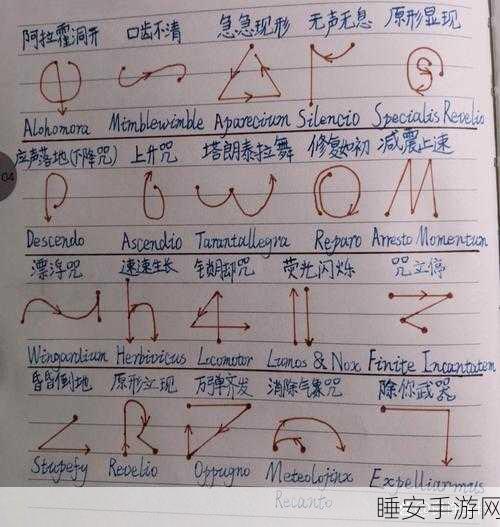 阿拉霍洞开 口齿不清 急急现形 无声无息 原形显现
Alohomora Mimblewimble Aparecium Silencio Specialis Revelio
应声落地(下降咒) 上升咒 塔朗泰拉舞 修复如初 减震止速
04
Descendo Ascendio Tarantallegra Reparo Arresto Momentum
漂浮咒 速速生长 锁腿咒 荧光闪烁 咒立停
Wingardium Herbivicus Locomotor Lumos & Nox Finite Incantatem
昏昏倒地 原形立现 万弹齐发 消除气象咒 除你武器
Stupefy Revelio Oppugno Meteolojinx Expelliarmus
Recanto
睡安手游网